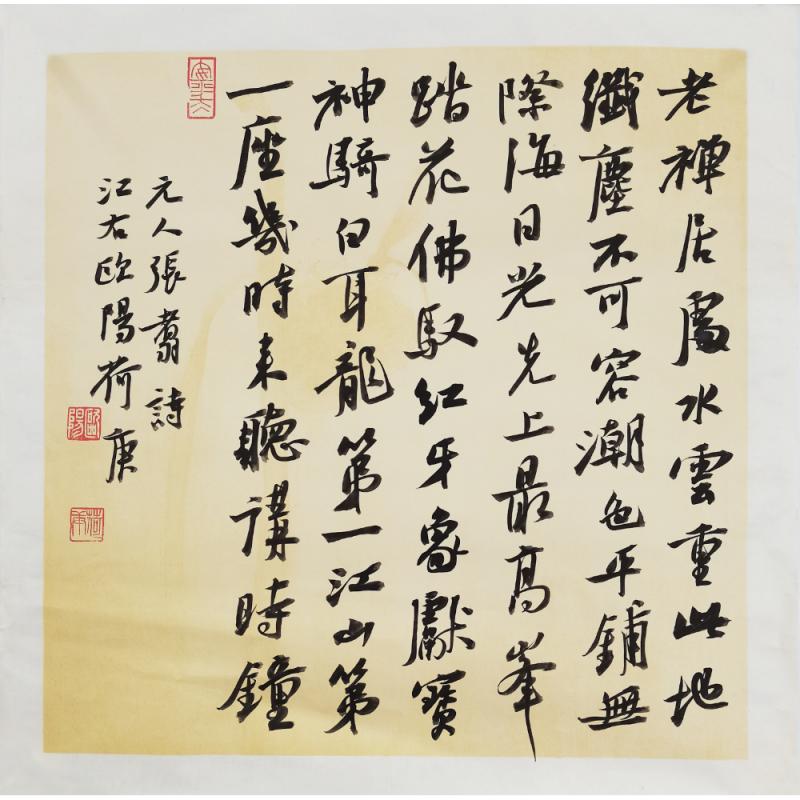 老禪居處水雲重此地
纖塵不可容潮色平鋪無
際海日光先上最高峯
踏花佛馭紅牙象獻寶
神騎白耳龍第一江山第
一座幾時来聽講時鐘
元人張翥詩
江右歐陽荷庚
歐陽
荷庚